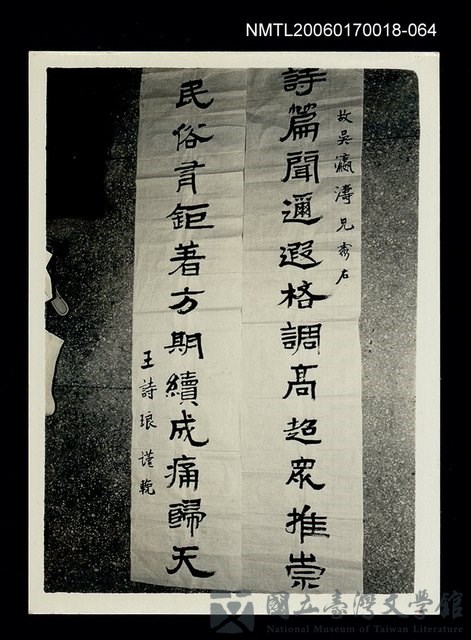 NMTL20060170018-064
故吳瀛濤兄靈右
詩篇聞邇遐格調高超眾推崇
民俗有鉅著方期續成痛歸天
王詩琅謹輓
國立臺灣文學館
National Museum of Taiwan Literature